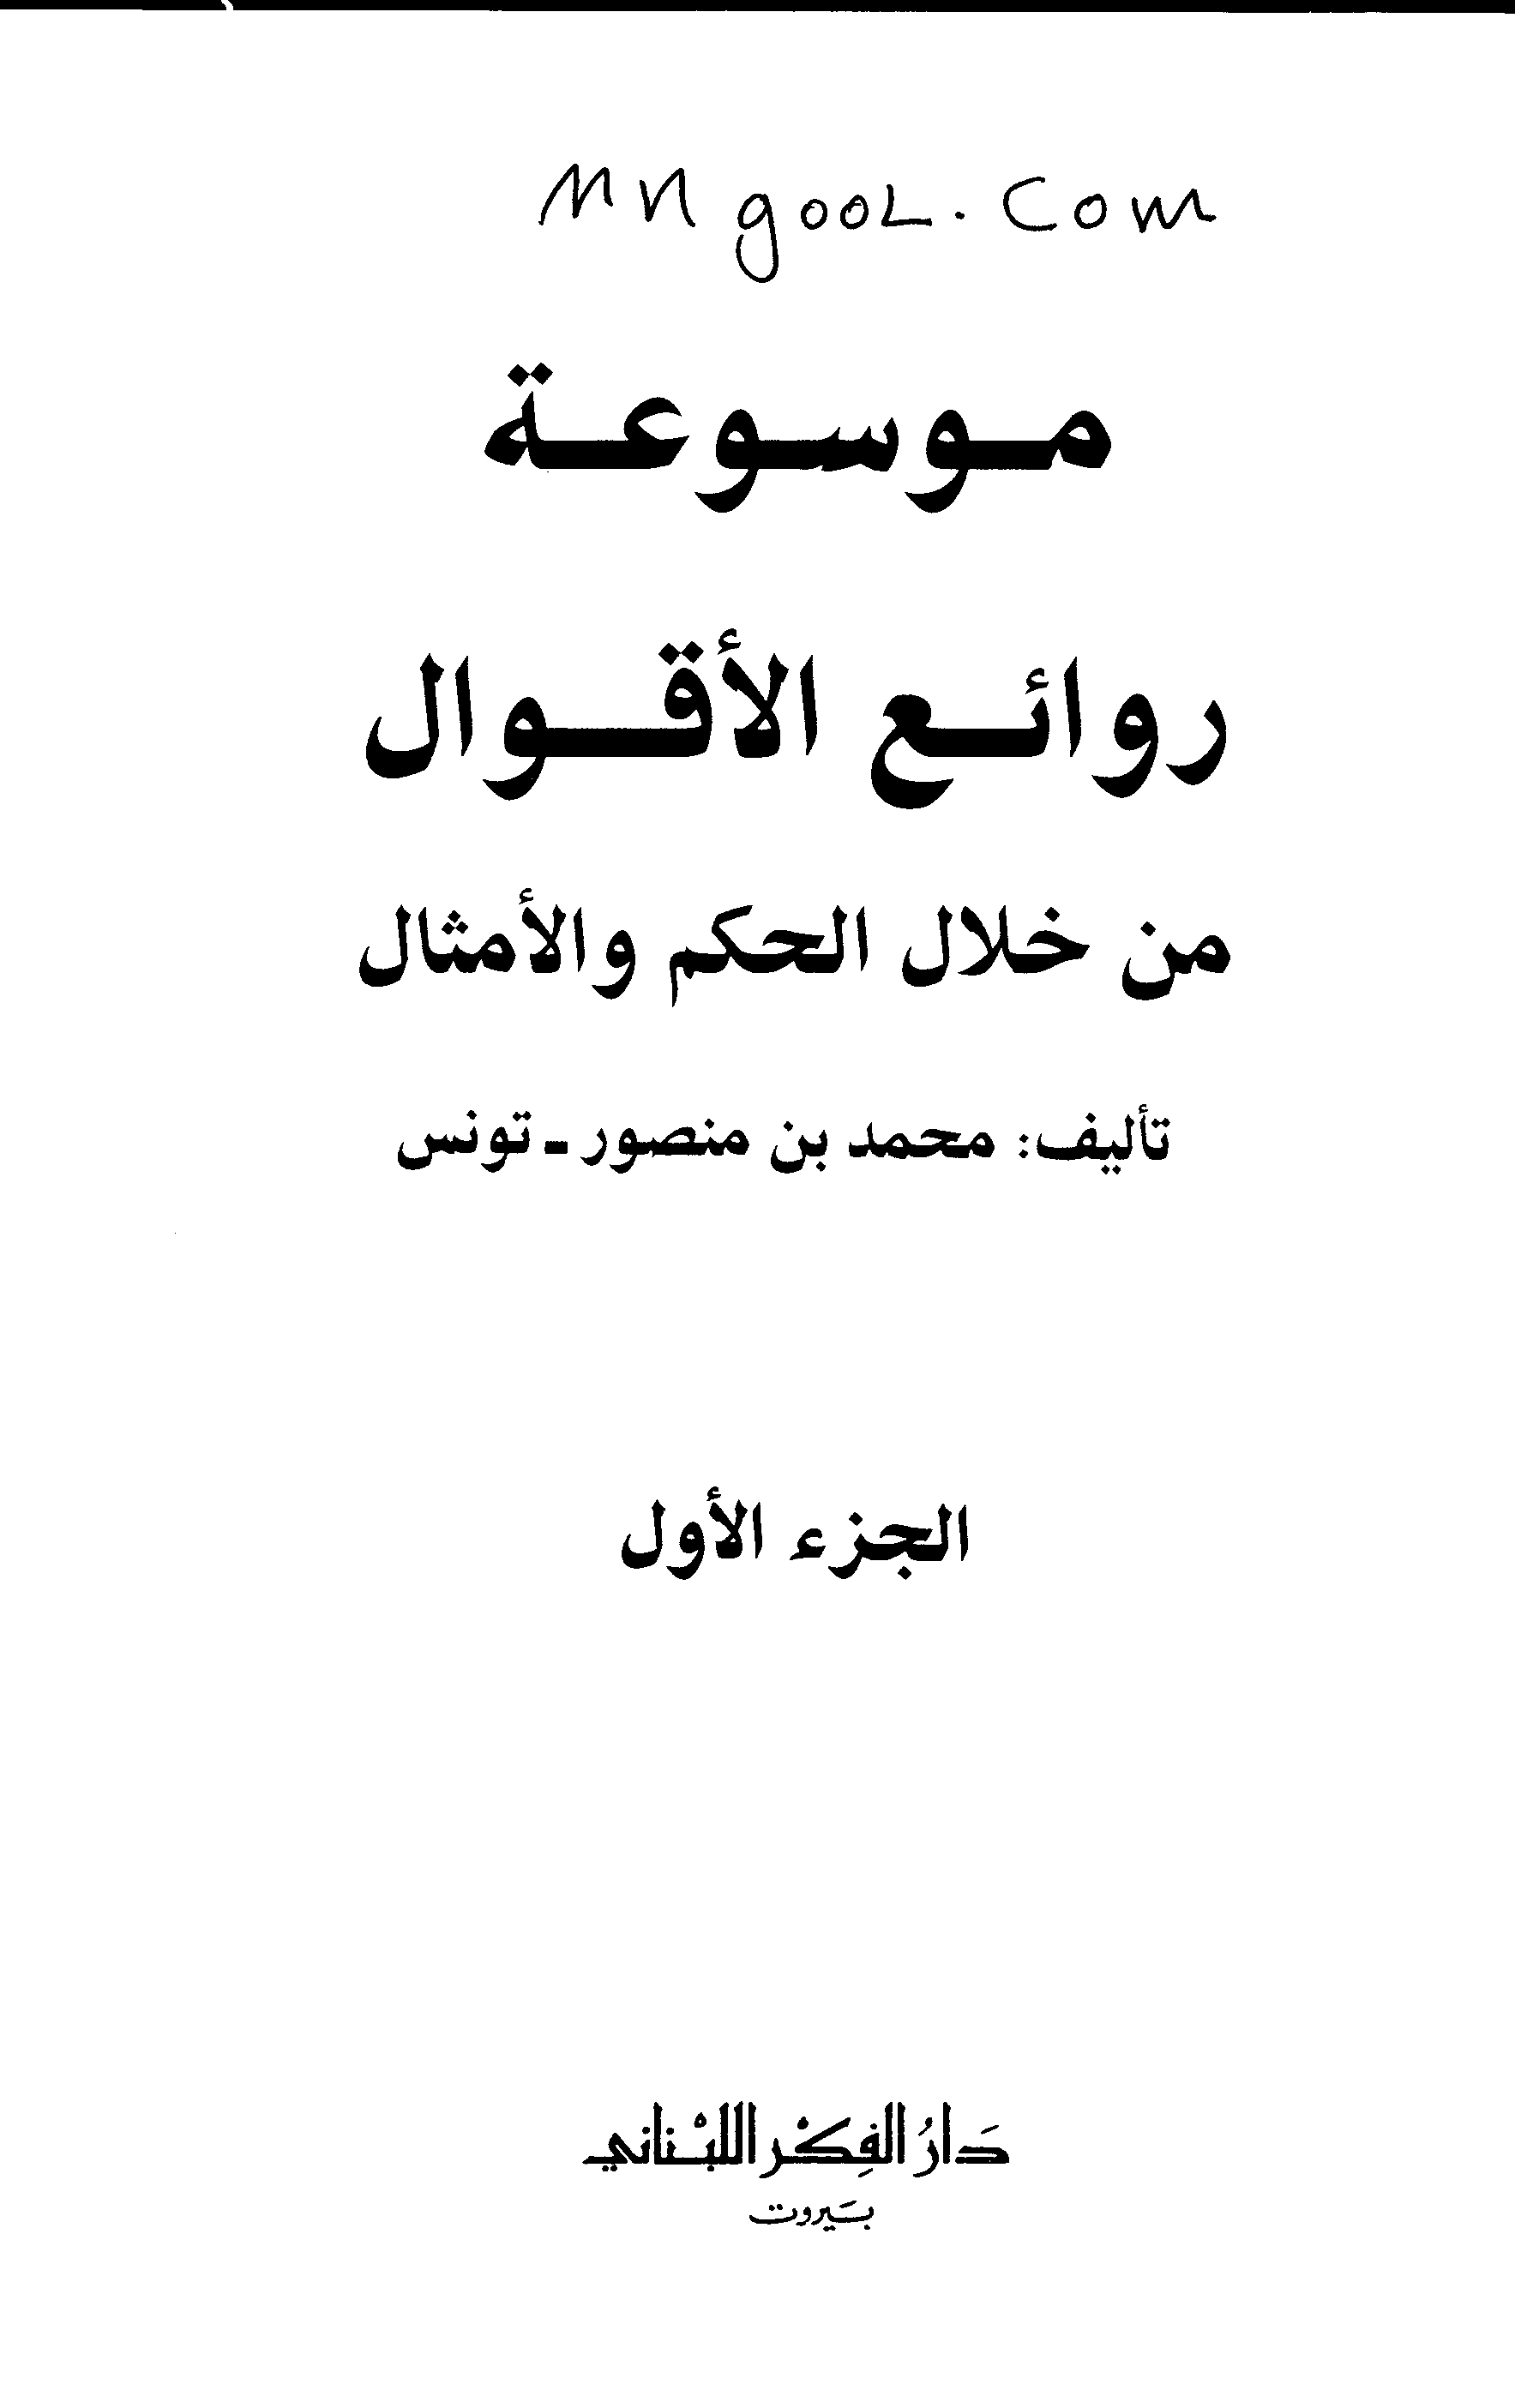 MN gooL. Com
موسوعة
روائع الأقوال
من خلال الحكم والأمثال
تأليف: محمد بن منصور - تونس
الجزء الأول
دَارُ الفِكْر اللبْناني
بَيروت